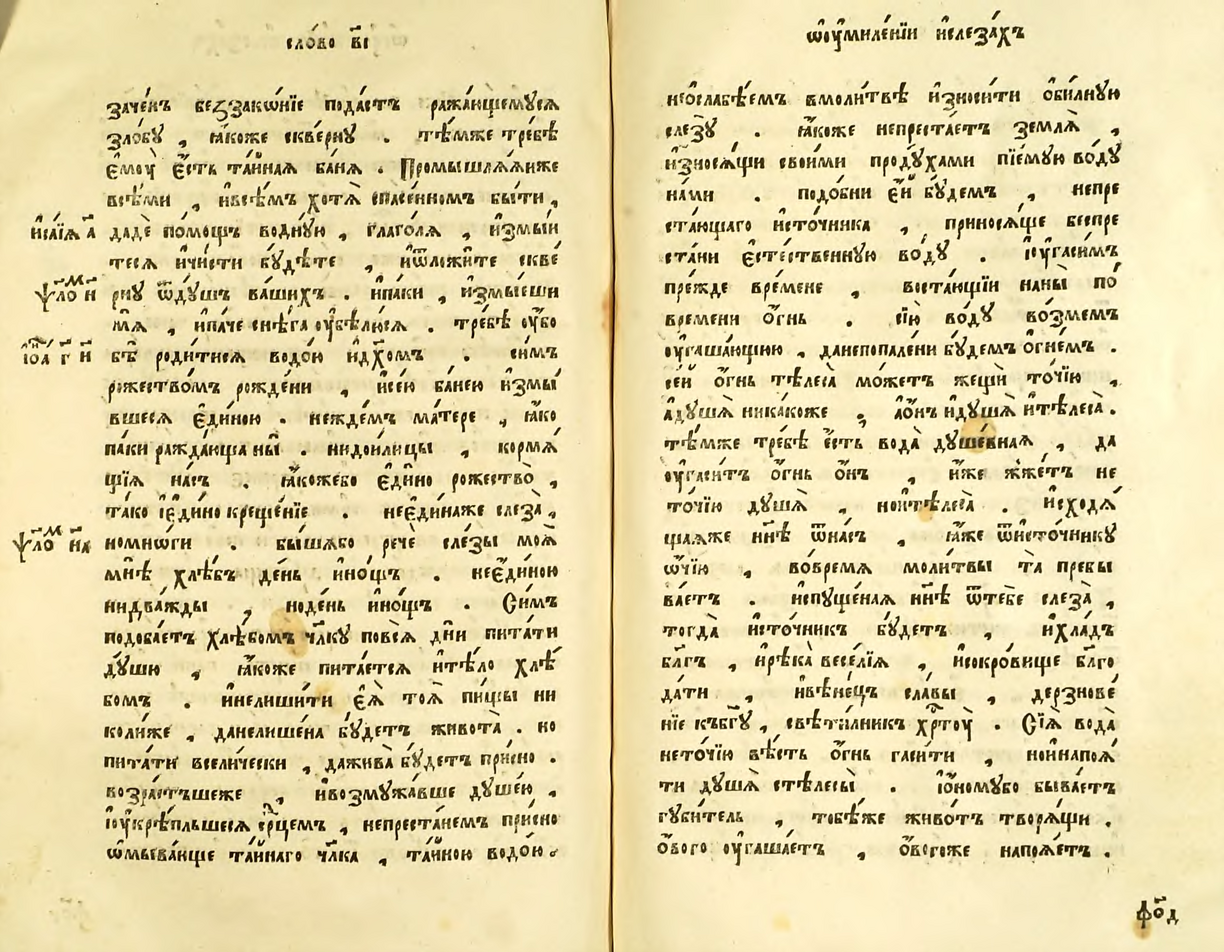 сло́во в҃і
заче́нъ беꙁзако́нїе подае́тъ ражда́ющемуся
зло́бу , ꙗ́коже скве́рну . тѣ́мже тре́бѣ
є҆мꙋ̀ є҆́сть та́йная ба́нѧ . Промышлѧ́ѧиже
всѣ́ми , и҆всѣ́мъ хотѧ̀ спасе́номъ бы́ти ,
и҆са́їѧ а҃
дадѐ по́мощь во́днꙋю , глаго́лѧ , и҆змы́и
тесѧ и҆чи́сти бꙋ́дѣте , и҆ѿложи́те скве́
ѱло́м н҃
рнꙋ ѿдꙋ́шъ ва́шихъ . и҆па́ки , и҆змы́еши
мѧ̀ , и҆па́че снѣ́га ᲂу҆бѣлю́сѧ . тре́бѣ ᲂу҆́бо
і҆оа́ г҃ и҃
бѣ̀ роди́тисѧ водо́ю и҆дх҃омъ . си́мъ
рожество́мъ рожде́ни , и҆се́ю ба́нею и҆змы́
вшесѧ є҆ди́ною . неждє́мъ ма́тере , ꙗ҆́ко
па́ки ражда́юща ны̀ . нидои́лицы , кормѧ́
щїѧ на́съ . ꙗ҆́кожебо є҆ди́но рожество̀ ,
та́ко і҆є҆ди́но креще́нїе . неє҆ди́наже слеза̀ ,
ѱло́м м҃а
номнѡ́ги . бы́шѧбо речѐ сле́зы моѧ̀
мнѣ̀ хлѣ́бъ де́нь и҆но́щь . неє҆ди́ною
нидва́жды , ноде́нь и҆но́щь . Си́мъ
подоба́етъ хлѣ́бомъ чл҃кꙋ повсѧ̀ дн҃и пита́ти
дꙋ́шю , ꙗ҆́коже пита́етсѧ и҆тѣ́ло хлѣ́
бомъ . и҆нелиши́ти є҆ѧ̀ тоѧ̀ пи́щы ни
коли́же , данелише́на бꙋ́детъ живота̀ . но
пита́ти всели́чески , дажива̀ бꙋ́детъ при́сно .
возра́стъшеже , и҆возмꙋжа́вше дꙋше́ю ,
і҆ᲂу҆крѣ́пльшесѧ ср҃цемъ , непреста́немъ при́сно
ѡ҆мыва́юще та́йнаго чл҃ка , та́йною водо́ю .
ѡ҆ᲂу҆миле́нїи и҆слеза́хъ
неѡ҆слабѣ́емъ вмоли́твѣ и҆зноси́ти ѻ҆би́лнꙋю
сле́зꙋ . ꙗ҆́коже непреста́етъ землѧ̀ ,
и҆зносѧ́щи свои́ми продꙋ́хами пїе́мꙋю во́дꙋ
на́ми . подо́бни є҆́й бꙋ́демъ , непре
ста́ющаго и҆сто́чника , приносѧ́ще беспре
ста́ни є҆сте́ственнꙋю во́дꙋ . і҆ᲂу҆гаси́мъ
пре́жде вре́мене , востаю́щїи наны̀ по́
времени ѻ҆́гнь . сїю̀ во́дꙋ во́змемъ
ᲂу҆гаша́ющюю , данепопале́ни бꙋ́демъ ѻ҆гне́мъ .
се́й ѻ҆́гнь тѣлеса̀ мо́жетъ жещѝ то́чїю ,
а҆дꙋ́шѧ ника́коже , а҆ѻ҆́нъ и҆дꙋ́шѧ и҆тѣлеса̀ .
тѣ́мже тре́бѣ є҆́сть вода̀ дꙋше́внаѧ , да
ᲂу҆гаси́тъ ѻ҆́гнь ѻ҆́нъ , и҆́же жже́тъ не
то́чїю дꙋ́шѧ , нои҆тѣлеса̀ . и҆сходѧ́
щаѧже нн҃ѣ ѿна́съ , ꙗ҆́же ѿи҆сто́чникꙋ
ѻ҆́чїю , вовре́мѧ моли́твы та̀ пребы
ва́етъ . и҆спꙋще́наѧ нн҃ѣ ѿтебѐ слеза̀ ,
тогда̀ и҆сто́чникъ бꙋ́детъ , и҆хла́дъ
бл҃гъ , и҆рѣка̀ весе́лїѧ , и҆сокро́вище бл҃го
да́ти , и҆вѣне́цъ сла́вы , дерзнове́
нїе къбг҃ꙋ , свѣти́лникъ хр҃тоꙋ̀ . Сїѧ̀ вода̀
нето́чїю вѣ́сть ѻ҆́гнь гаси́ти , нои҆напоѧ́
ти дꙋ́шѧ стѣлесы̀ . і҆ѻ҆номꙋ́бо быва́етъ
гꙋби́тель , тобѣ́же живо́тъ творѧ́щи .
ѻ҆́вого ᲂу҆гаша́етъ , ѻ҆́вогоже напоѧ́етъ .
ф҃од